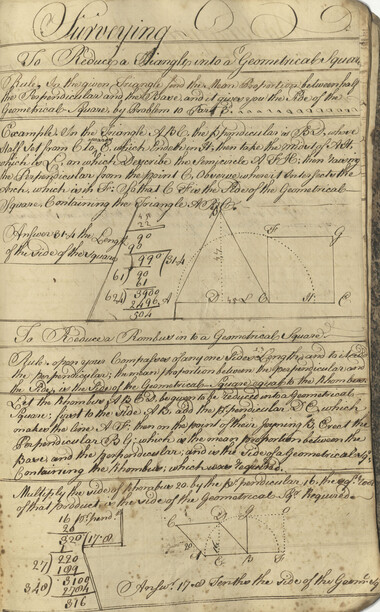 Surveying
To Reduce a Triangle into a Geometrical Square
Rule. In the given Triangle find the Mean Proportion between half
the Perpendicular and the Base and it gives you the Side of the
Geometrical Square, by Problem 10 Part
Example In the Triangle ABC, the Perpendicular is BD, whose
Half Set from C to which then take the midst of AH,
which is L, on which Describe the Semicircle AFH; then raising
the Perpendicular from the point C, Observe where it intersects the
Arch, which is in F; So that CF is the Side of the Geometrical
Square, Containing the Triangle ABC
Answer 31.4 the Length
of the Side of the Square
45
22
90
90
990 (31.4
61) 90
61
624) 2900
2496
504
B
F
G
A
D
C
H
E
To Reduce a Rombus in to a Geometrical Square
Rule. open your Compasses of any one Sides Length, and to it add
the perpendicular; the mean proportion between the perpendicular and
the Side, is the Side of the Geometrical Square, equal to the Rhombus
Let the Rhombus ABCD, be given to be Reduced into a Geometrical
Square; first to the Side AB, add the perpendicular DE, which
makes the Line AF; then on the point of their Joyning B, Erect the
Perpendicular BG; which is the mean proportion between the
Base and the perpendicular, and is the Side of a Geometrical Sqr.
Containing the Rhombus, which was required.
Multiply the Side of rhombus 20 by the Perpendicular 16, the
of that product is the Side of the Geometrical Sqr. Required
16
20
320 (17.8
1
27) 220
189
348) 3100
2784
316
C
D
G
20
A
E
B
F
Answr. 17.8 Tenths the Side of the